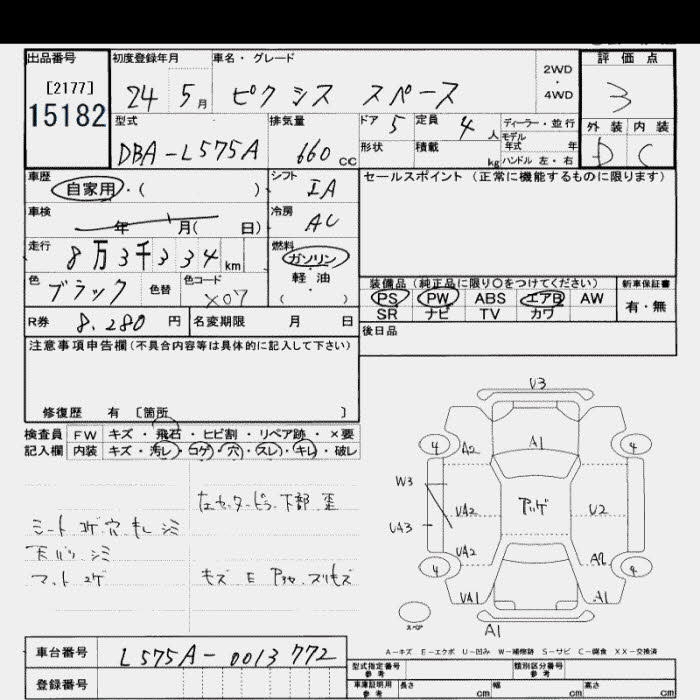 出品番号 初度登録年月 車名・グレード 2WD・4WD 評価点
[2177] 24 5月 ピクシス スペース 3
15182 型式 排気量 ドア 5 定員 4人 ディーラー・並行 外装 内装
DBA-L575A 660cc 形状 積載 kg モデル年式 年 D C
ハンドル 左・右
車歴 自家用・( ) シフト IA セールスポイント (正常に機能するものに限ります)
車検 年 月( 日) 冷房 AC
走行 8万3千334km 燃料 ガソリン・軽・油 ( )
色 ブラック 色替 色コード X07 装備品 (純正品に限り○をつけてください) 新車保証書
PS PW ABS エアB AW 有・無
R券 8,280円 名変期限 月 日 SR ナビ TV カワ
後日品
注意事項申告欄(不具合内容等は具体的に記入して下さい)
修復歴 有 [箇所 ]
検査員 FW キズ・飛石・ヒビ割・リペア跡・×要
記入欄 内装 キズ・汚レ・コゲ・穴・スレ・キレ・破レ
左センターピラー下部 歪
シート コゲ 穴 キレ シミ
天バリ シミ
マット コゲ
キズ E
U3
4 A2 A1 4
W3
UA2 アハゲ U2
UA3
UA2 A2
4 4
UA1 A1
スペア
A1
A-キズ E-エクボ U-凹み W-補修跡 S-サビ C-腐食 XX-交換済
車台番号 L575A-0013772 型式指定番号 参考 類別区分番号 参考
登録番号 車庫証明用 参考 長さ cm 幅 cm 高さ cm